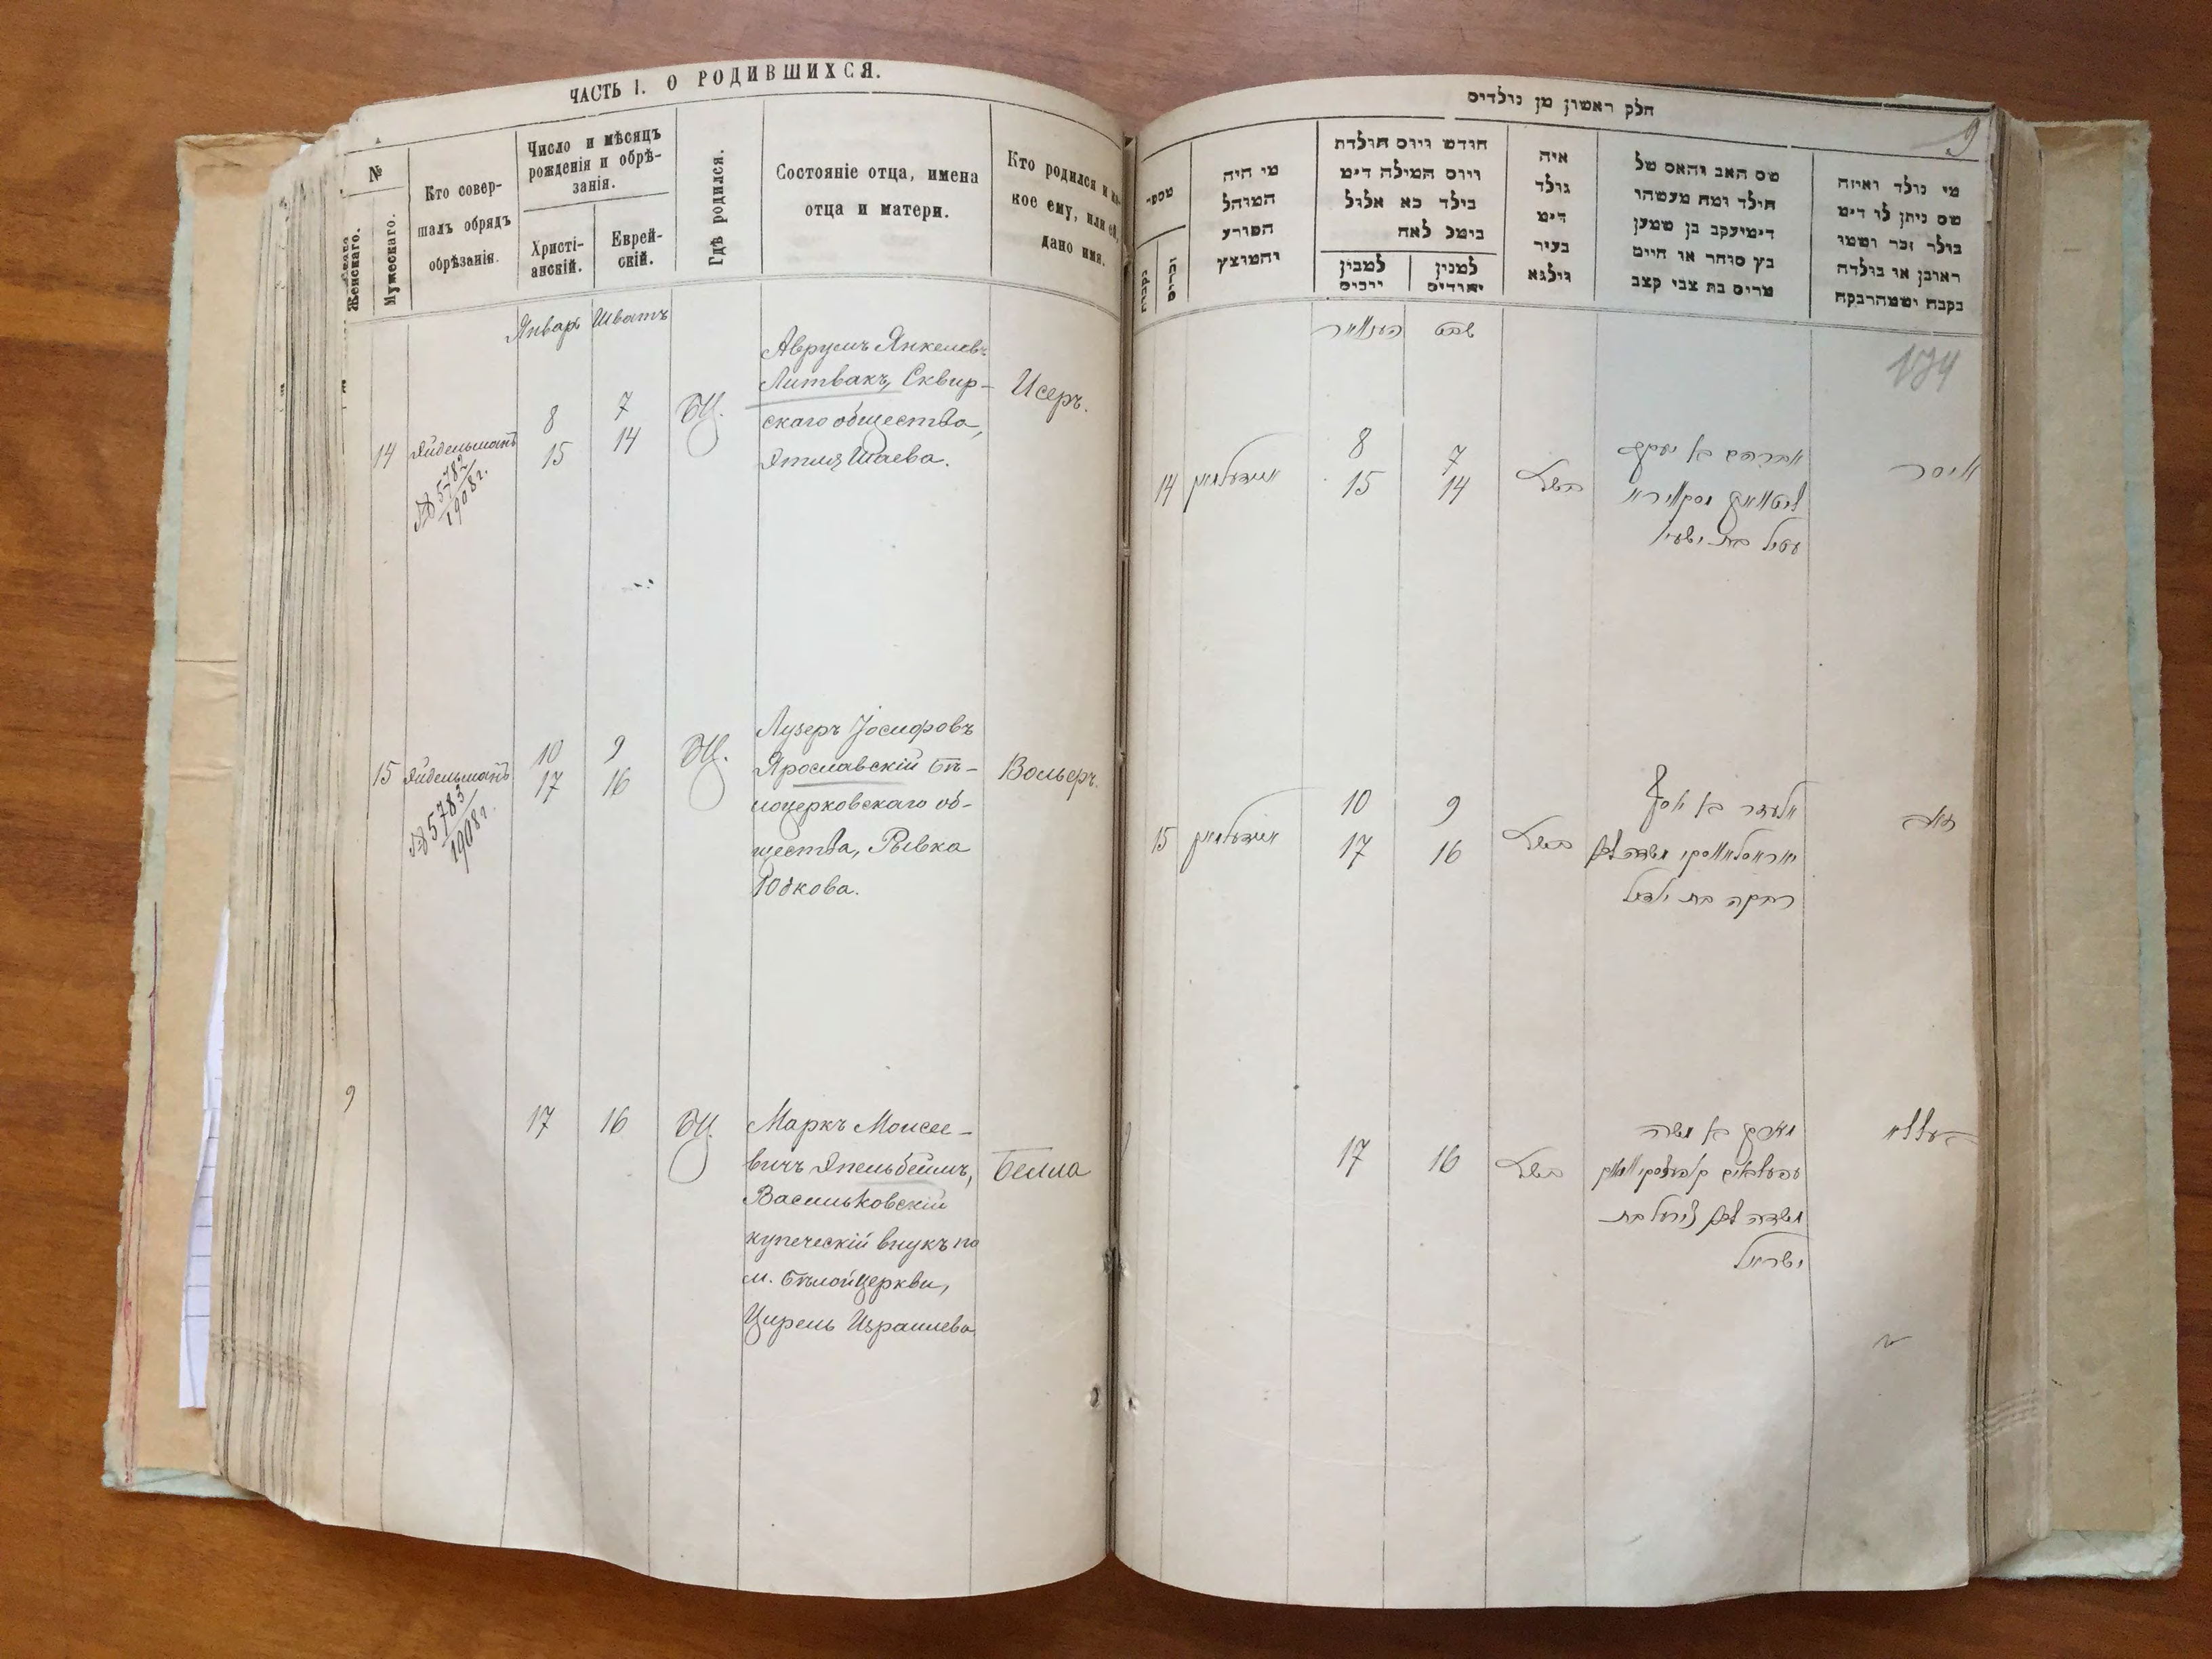 ЧАСТЬ I. О РОДИВШИХСЯ.
№
Женскаго.
Мужескаго.
Кто совер-
шалъ обрядъ
обрѣзанія.
Число и мѣсяцъ
рожденія и обрѣ-
занія.
Христі-
анскій.
Еврей-
скій.
Гдѣ родился.
Состояніе отца, имена
отца и матери.
Кто родился и ка-
кое ему, или ей,
дано имя.
Январь Шватъ
14 Айдельманъ
№ 5782
1908 г.
8 7
15 14
БЦ.
Аврумъ Янкелевъ
Литвакъ, Сквир-
скаго общества,
Этля Шаева.
Исеръ.
15 Айдельманъ
№ 5783
1908 г.
10 9
17 16
БЦ.
Лузеръ Іосифовъ
Ярославскій Бѣ-
лоцерковскаго об-
щества, Рывка
Юдкова.
Вольфъ.
9
17 16
БЦ.
Маркъ Моисее-
вичъ Эпельбеймъ,
Васильковскій
купеческій внукъ по
м. Бѣлойцеркви,
Цирель Израилева
Белла
חלק ראשון מן נולדים
9
מספר
נקבות
זכרים
מי היה
המוהל
הפורע
והמוצץ
חודש ויום תולדת
ויום המילה דימ
בילד כא אלול
בימל לאח
למבין
ירבים
למנין
יהודים
איה
נולד
דימ
בעיר
ווילנא
שם האב והאם של
הילד ומה מעשהו
דימיעקב בן שמען
כץ סוחר או חיים
מרים בת צבי קצב
מי נולד ואיזה
שם ניתן לו דימ
בולר זכר ושמו
ראובן או בולדה
נקבה ושמהרבקה
שבט
134
14
8 7
15 14
אברהם בן יעקב
עטיל בת ישעי'
איסר
15
10 9
17 16
אלעזר בן יוסף
רבקה בת יודיל
17 16
ישראל